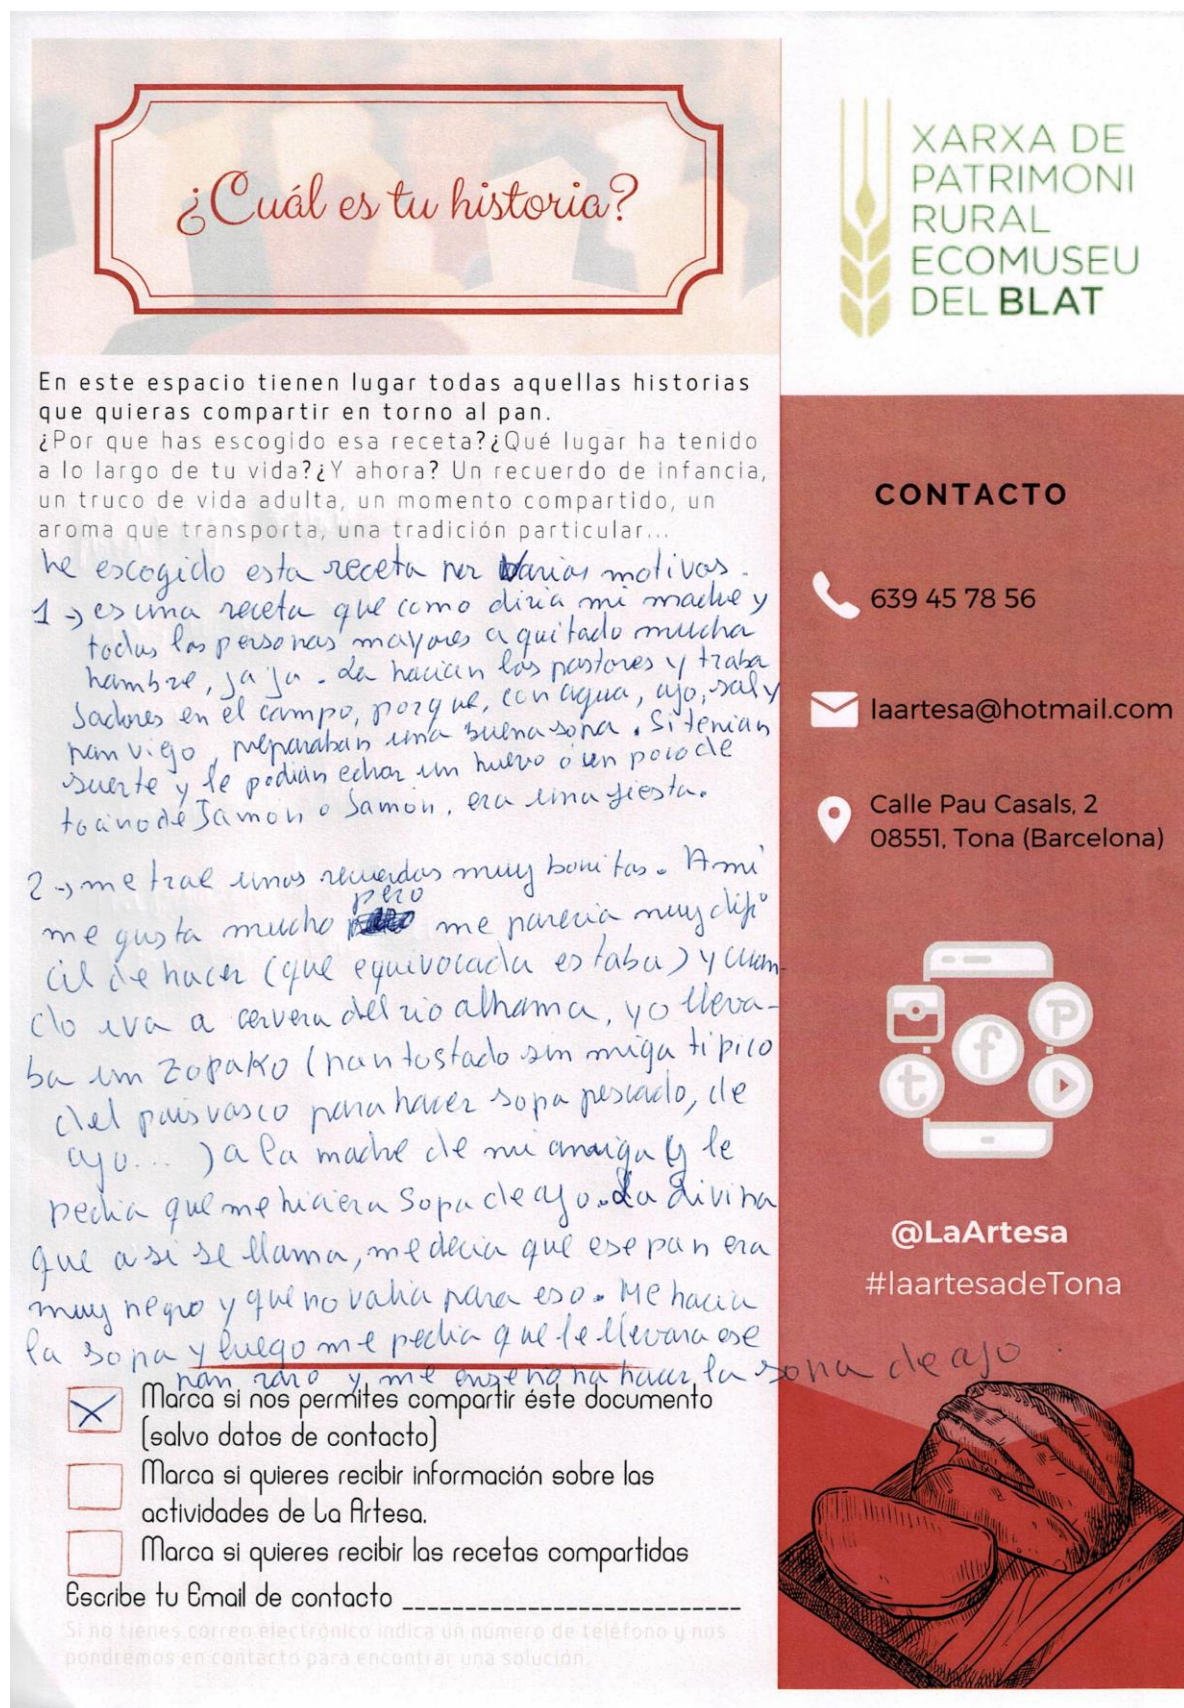 ¿Cuál es tu historia?
XARXA DE
PATRIMONI
RURAL
ECOMUSEU
DEL BLAT
En este espacio tienen lugar todas aquellas historias
que quieras compartir en torno al pan.
¿Por que has escogido esa receta?¿Qué lugar ha tenido
a lo largo de tu vida?¿Y ahora? Un recuerdo de infancia,
un truco de vida adulta, un momento compartido, un
aroma que transporta, una tradición particular...
he escogido esta receta por varios motivos.
1 → es una receta que como diria mi madre y
todas las personas mayores a quitado mucha
hambre, ja ja. La hacian los pastores y traba
jadores en el campo, porque, con agua, ajo, sal y
pan viejo, preparaban una buena sopa. Si tenian
suerte y le podian echar un huevo o un poco de
tocino de Jamon o Jamón, era una fiesta.
2 → me trae unos recuerdos muy bonitos. A mi
me gusta mucho pero me parecia muy difi
cil de hacer (que equivocada estaba) y cuan-
do iva a cervera del rio alhama, yo lleva-
ba un zopako (pan tostado sin miga tipico
del pais vasco para hacer sopa pescado, de
ajo...) a la madre de mi amiga y le
pedia que me hiciera Sopa de ajo. La Divina
que asi se llama, me decia que ese pan era
muy negro y que no valia para eso. Me hacia
la sopa y luego me pedia que le llevara ese
pan raro y me enseño ha hacer la sopa de ajo.
Marca si nos permites compartir éste documento
(salvo datos de contacto)
Marca si quieres recibir información sobre las
actividades de La Artesa.
Marca si quieres recibir las recetas compartidas
Escribe tu Email de contacto ___________________________
Si no tienes correo electrónico indica un número de teléfono y nos
pondremos en contacto para encontrar una solución.
CONTACTO
639 45 78 56
laartesa@hotmail.com
Calle Pau Casals, 2
08551, Tona (Barcelona)
@LaArtesa
#laartesadeTona